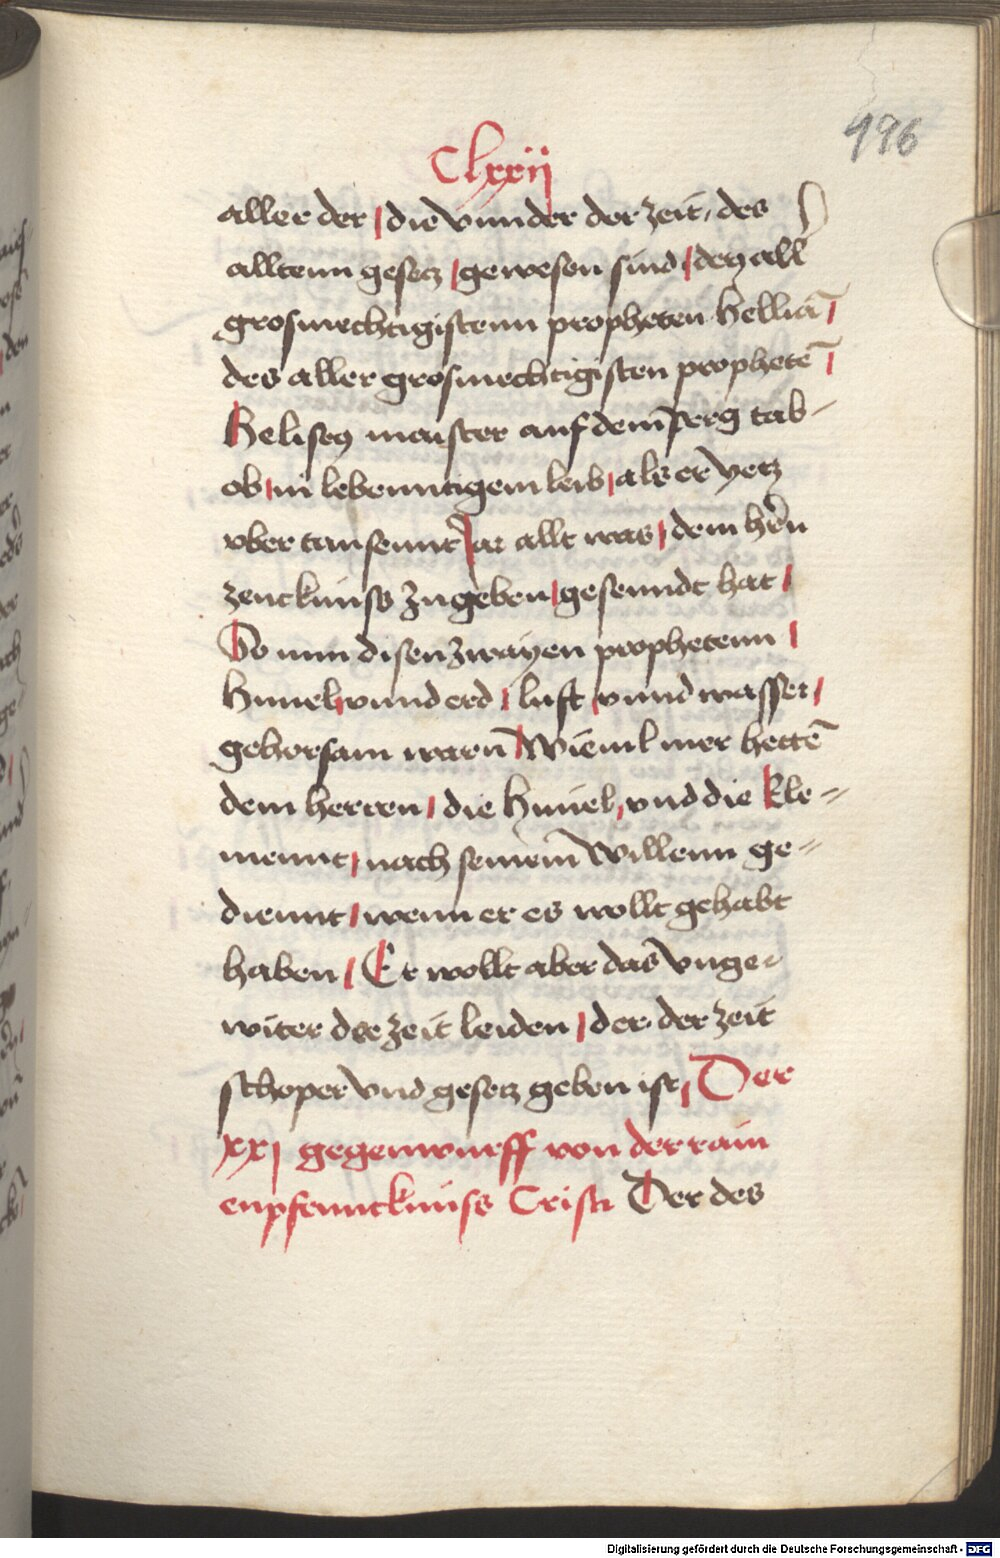 196
Clxxij
aller der / die vnnder der zeit, des
alltenn gesetz / gewesen sind / den all
grosmechtigistenn propheten Hellia͂ /
des aller grosmechtigisten prophete͂ /
Helisey maister auf dem perg tab-
or / in lebenntigem leib / als er yetz
vber tausennt Jar allt was / dem hern
zeucknuss zu geben / gesenndt hat /
So nun disen zwayen prophetenn /
himel / vnnd erd / luft / vnnd wasser /
gehorsam warn / Wieuil mer hette͂
dem herren / die himel / vnd die Ele=
mennt / nach seinem willenn ge=
diennt / wenn er es wollt gehabt
haben / Er wollt aber das vnge-
witer der zeit leiden / der der zeit
schoper vnd gesetz geben ist / Der
xxj gegenwurff von der rain
enpfenncknuss Cristi Der des
Digitalisierung gefördert durch die Deutsche Forschungsgemeinschaft - DFG